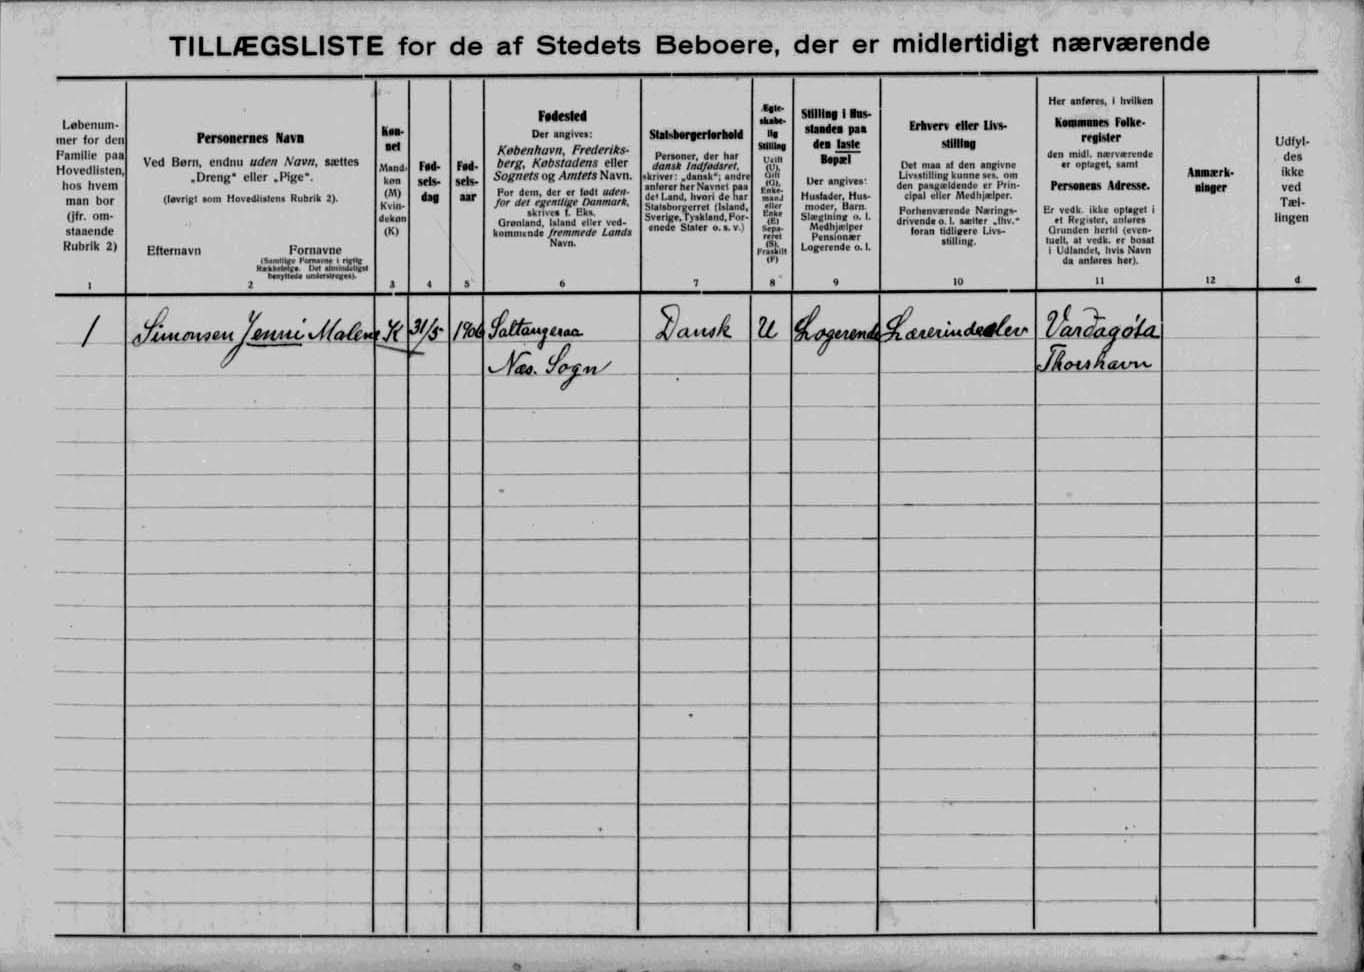 TILLÆGSLISTE for de af Stedets Beboere, der er midlertidigt nærværende
Løbenum-
mer for den
Familie paa
Hovedlisten,
hos hvem
man bor
(jfr. om-
staaende
Rubrik 2)
1
Personernes Navn
Ved Børn, endnu uden Navn, sættes
„Dreng“ eller „Pige“.
(Iøvrigt som Hovedlistens Rubrik 2).
Efternavn Fornavne
(Samtlige Fornavne i rigtig
Rækkefølge. Det almindeligst
benyttede understreges).
2
Køn-
net
Mand-
køn
(M)
Kvin-
dekøn
(K)
3
Fød-
sels-
dag
4
Fød-
sels-
aar
5
Fødested
Der angives:
København, Frederiks-
berg, Købstadens eller
Sognets og Amtets Navn.
For dem, der er født uden-
for det egentlige Danmark,
skrives f. Eks.
Grønland, Island eller ved-
kommende fremmede Lands
Navn.
6
Statsborgerforhold
Personer, der har
dansk Indfødsret,
skriver: „dansk“; andre
anfører her Navnet paa
det Land, hvori de har
Statsborgerret (Island,
Sverige, Tyskland, For-
enede Stater o. s. v.)
7
Ægte-
skabe-
lig
Stilling
Ugift
(U),
Gift
(G),
Enke-
mand
eller
Enke
(E)
Sepa-
reret
(S),
Fraskilt
(F)
8
Stilling i Hus-
standen paa
den faste
Bopæl
Der angives:
Husfader, Hus-
moder, Barn,
Slægtning o. l.
Medhjælper
Pensionær
Logerende o. l.
9
Erhverv eller Livs-
stilling
Det maa af den angivne
Livsstilling kunne ses, om
den paagældende er Prin-
cipal eller Medhjælper.
Forhenværende Nærings-
drivende o. l. sætter „fhv.“
foran tidligere Livs-
stilling.
10
Her anføres, i hvilken
Kommunes Folke-
register
den midl. nærværende
er optaget, samt
Personens Adresse.
Er vedk. ikke optaget i
et Register, anføres
Grunden hertil (even-
tuelt, at vedk. er bosat
i Udlandet, hvis Navn
da anføres her).
11
Anmærk-
ninger
12
Udfyl-
des
ikke
ved
Tæl-
lingen
d
1 Simonsen Jenni Malene K 31/5 1906 Saltangeraa Dansk U Logerende Lærerindeelev Vardagøta
Næs. Sogn Thorshavn